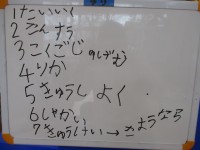 1たいいく
2さんすう
3こくごじ のしげむ
4りか
5きゅうしよく
6しゃかい
7きゅうけい→さようなら